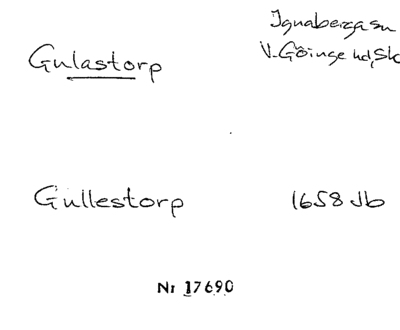 Ignaberga sn
Gulastorp
V. Göinge hd, Sk
Gullestorp 1658 Jb
Nr 17690